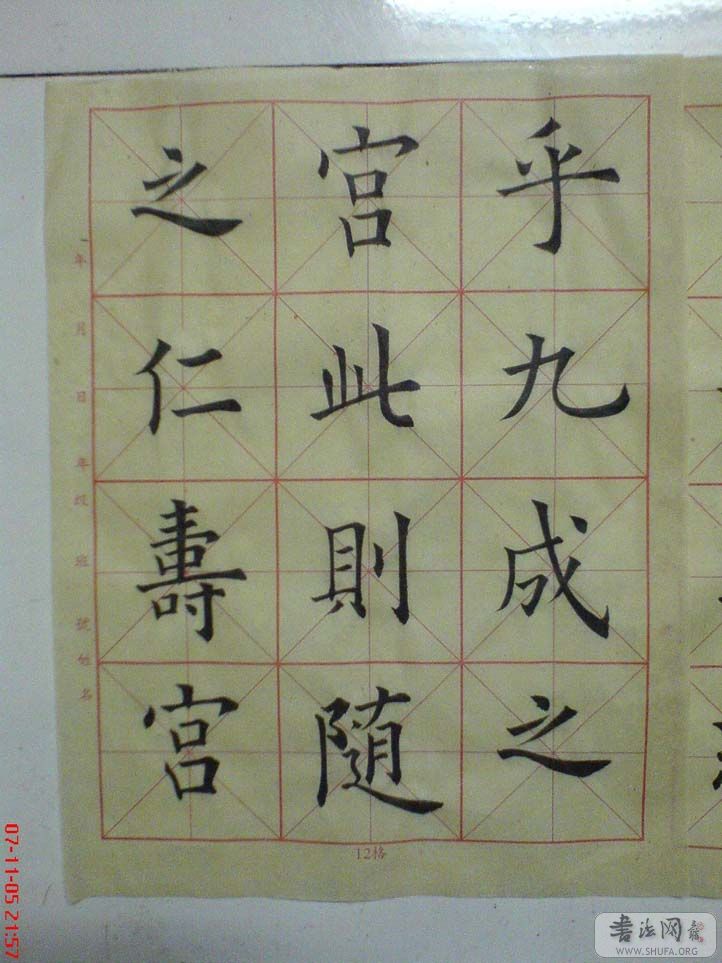 乎九成之
宮此則随
之仁壽宮
年 月 日 年 級 班 號 姓名
12格
07-11-05 21:57
書法网
WWW.SHUFA.ORG